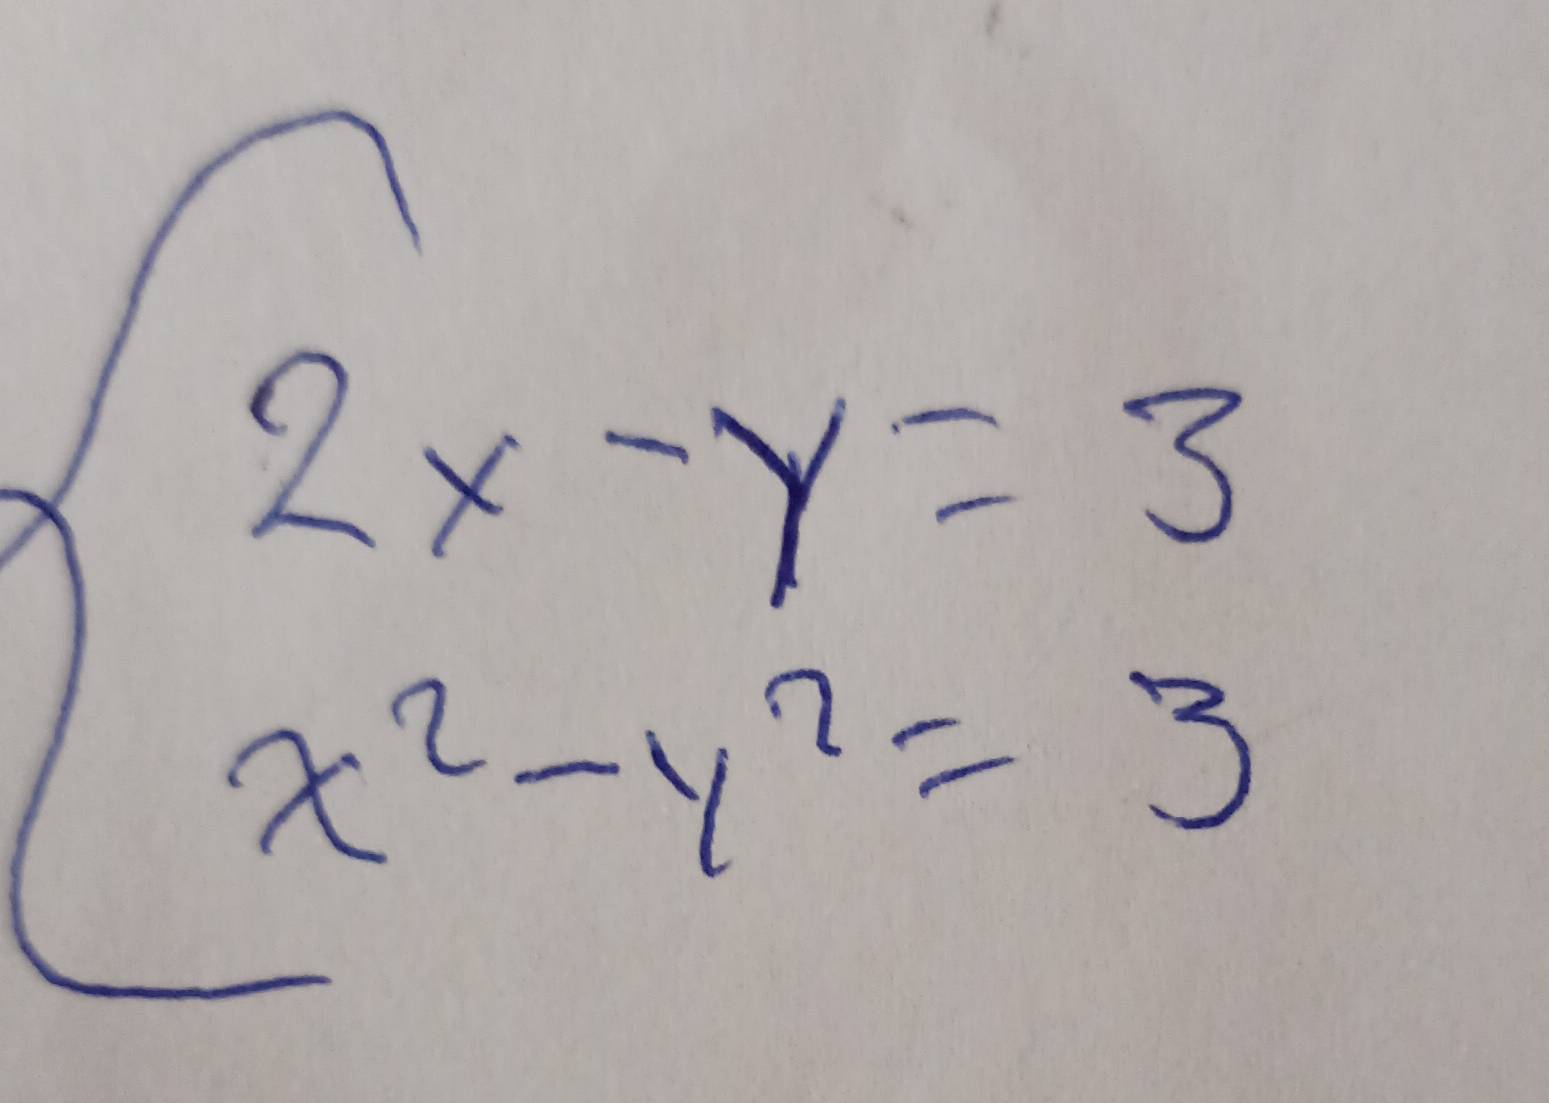 2x - y = 3
x² - y² = 3